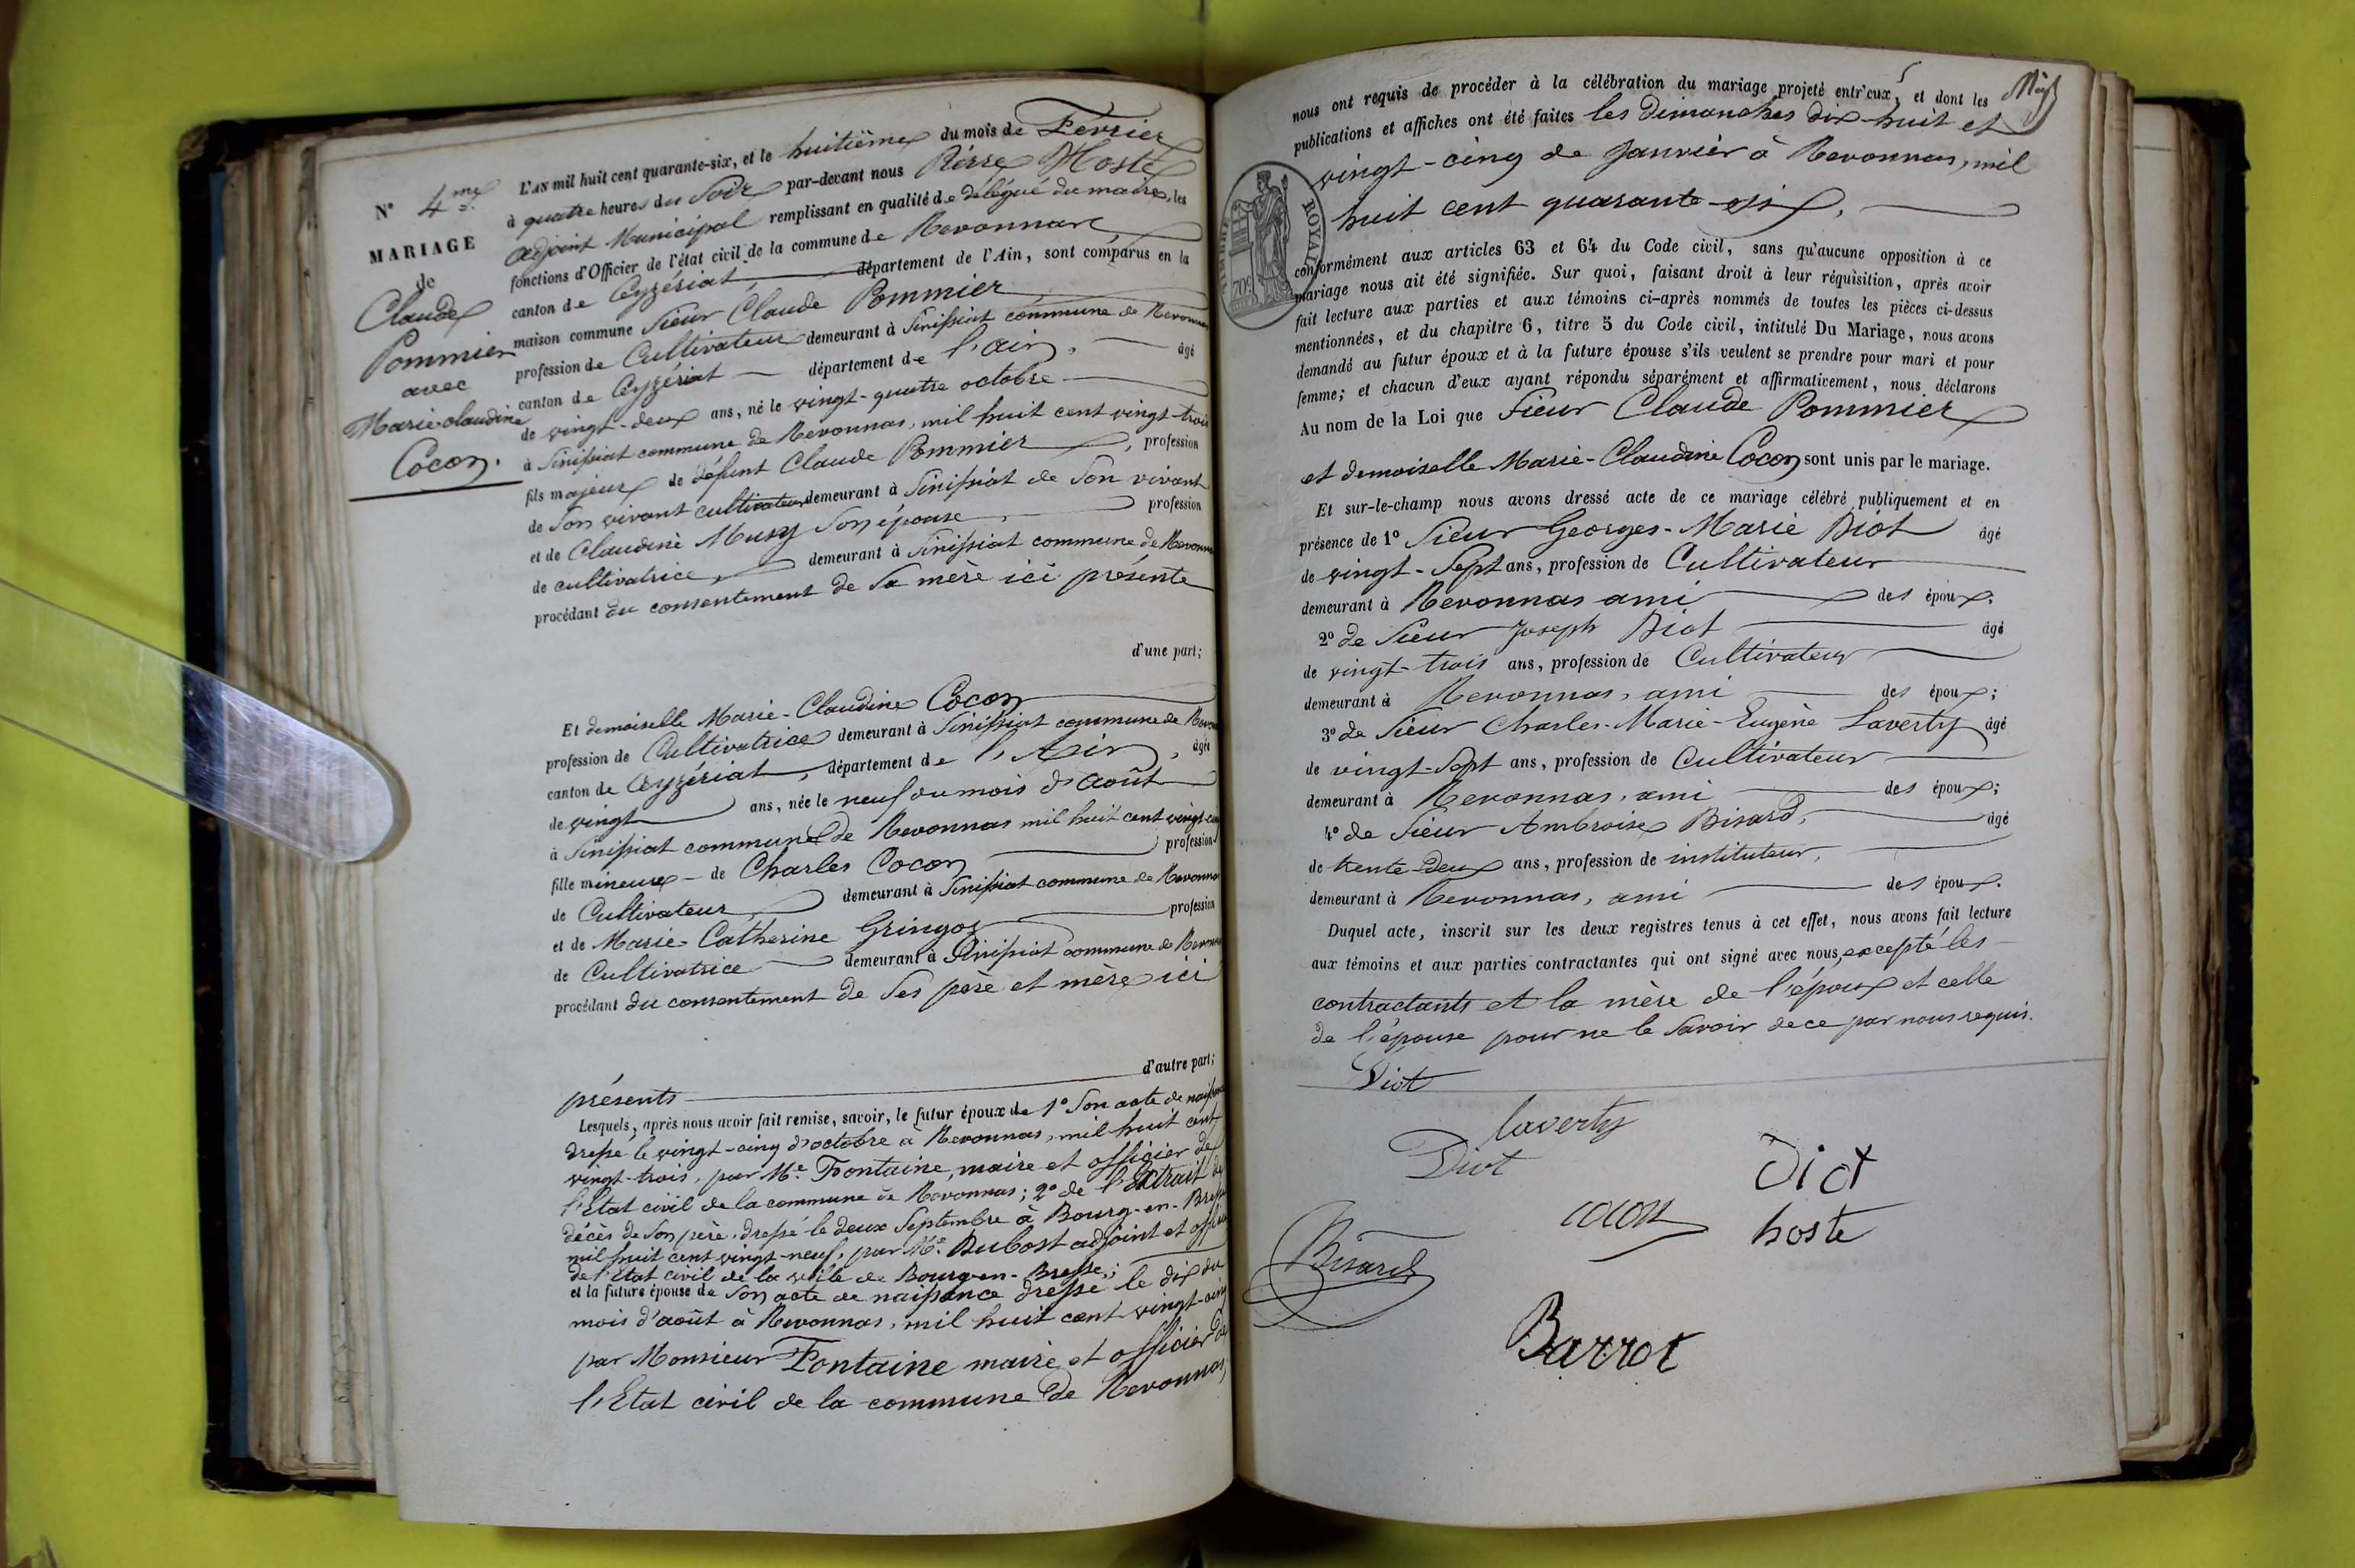 N° 4me
MARIAGE
de
Claude
Pommier
avec
Marie-Claudine
Cocon.
L'AN mil huit cent quarante-six, et le huitième du mois de Fevrier
à quatre heures du Soir par-devant nous Pierre Hoste
adjoint Municipal remplissant en qualité de délégué du maire, les
fonctions d'Officier de l'état civil de la commune de Revonnas,
canton de Ceyzériat, département de l'Ain, sont comparus en la
maison commune Sieur Claude Pommier
profession de Cultivateur demeurant à Sénissiat commune de Revonnas
canton de Ceyzériat département de l'ain, âgé
de vingt-deux ans, né le vingt-quatre octobre
à Sénissiat commune de Revonnas, mil huit cent vingt-trois
fils majeur de défunt Claude Pommier, profession
de Son vivant cultivateur demeurant à Sénissiat de Son vivant
et de Claudine Musy Son épouse, profession
de cultivatrice, demeurant à Sénissiat commune de Revonnas
procédant du consentement de Sa mère ici présente
d'une part;
Et demoiselle Marie-Claudine Cocon
profession de Cultivatrice demeurant à Sénissiat commune de
canton de Ceyzériat, département de l'Ain, âgée
de vingt ans, née le neuf du mois d'août
à Sénissiat commune de Revonnas mil huit cent vingt-cinq
fille mineure de Charles Cocon profession
de Cultivateur, demeurant à Sénissiat commune de Revonnas
et de Marie-Catherine Gringoz profession
de Cultivatrice demeurant à Sénissiat commune de Revonnas
procédant du consentement de Ses père et mère ici
d'autre part;
présents
Lesquels, après nous avoir fait remise, savoir, le futur époux de 1° Son acte de naissance
dressé le vingt-cinq d'octobre à Revonnas, mil huit cent
vingt-trois, par Mr. Fontaine, maire et officier de
l'Etat civil de la commune de Revonnas; 2° de l'Extrait de
décès de Son père, dressé le deux Septembre à Bourg-en-Bresse
mil huit cent vingt-neuf, par Mr. Dubost adjoint et officier
de l'Etat civil de la ville de Bourg-en-Bresse;
et la future épouse de Son acte de naissance dressé le dix du
mois d'août à Revonnas, mil huit cent vingt-cinq
par Monsieur Fontaine maire et officier de
l'Etat civil de la commune de Revonnas,
nous ont requis de procéder à la célébration du mariage projeté entr'eux, et dont les
publications et affiches ont été faites les dimanches dix-huit et
vingt-cinq de Janvier à Revonnas, mil
huit cent quarante-six,
TIMBRE ROYAL
70c
conformément aux articles 63 et 64 du Code civil, sans qu'aucune opposition à ce
mariage nous ait été signifiée. Sur quoi, faisant droit à leur réquisition, après avoir
fait lecture aux parties et aux témoins ci-après nommés de toutes les pièces ci-dessus
mentionnées, et du chapitre 6, titre 5 du Code civil, intitulé Du Mariage, nous avons
demandé au futur époux et à la future épouse s'ils veulent se prendre pour mari et pour
femme; et chacun d'eux ayant répondu séparément et affirmativement, nous déclarons
Au nom de la Loi que Sieur Claude Pommier
et demoiselle Marie-Claudine Cocon sont unis par le mariage.
Et sur-le-champ nous avons dressé acte de ce mariage célébré publiquement et en
présence de 1° Sieur Georges-Marie Diot âgé
de vingt-Sept ans, profession de Cultivateur
demeurant à Revonnas ami des époux.
2° de Sieur Joseph Diot âgé
de vingt-trois ans, profession de Cultivateur
demeurant à Revonnas, ami des époux;
3° de Sieur Charles-Marie-Eugène Laverty âgé
de vingt-Sept ans, profession de Cultivateur
demeurant à Revonnas, ami des époux;
4° de Sieur Ambroise Bisard, âgé
de trente-deux ans, profession de instituteur,
demeurant à Revonnas, ami des époux.
Duquel acte, inscrit sur les deux registres tenus à cet effet, nous avons fait lecture
aux témoins et aux parties contractantes qui ont signé avec nous, excepté les
contractants et la mère de l'époux et celle
de l'épouse pour ne le Savoir de ce par nous requis.
Diot
laverty
Diot
Diot
cocon
hoste
Bisard
Barrot